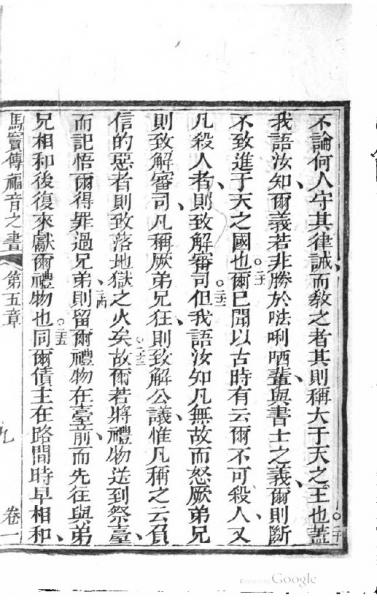 不論何人守其律誡而教之者其則稱大于天之王也蓋
我語汝知爾義若非勝於𠵽唎哂輩與書士之義爾則斷
不致進于天之國也爾巳聞以古時有云爾不可殺人又
凡殺人者則致解審司但我語汝知凡無故而怒厥弟兄
則致解審司凡稱厥弟兄狂則致解公議惟凡稱之云負
信的惡者則致落地獄之火矣故爾若將禮物送到祭臺
而記悟爾得罪過兄弟則留爾禮物在臺前而先往與弟
兄相和後復來獻爾禮物也同爾債主在路間時早相和
馬竇傳福音之書 第五章 九 卷一
Google